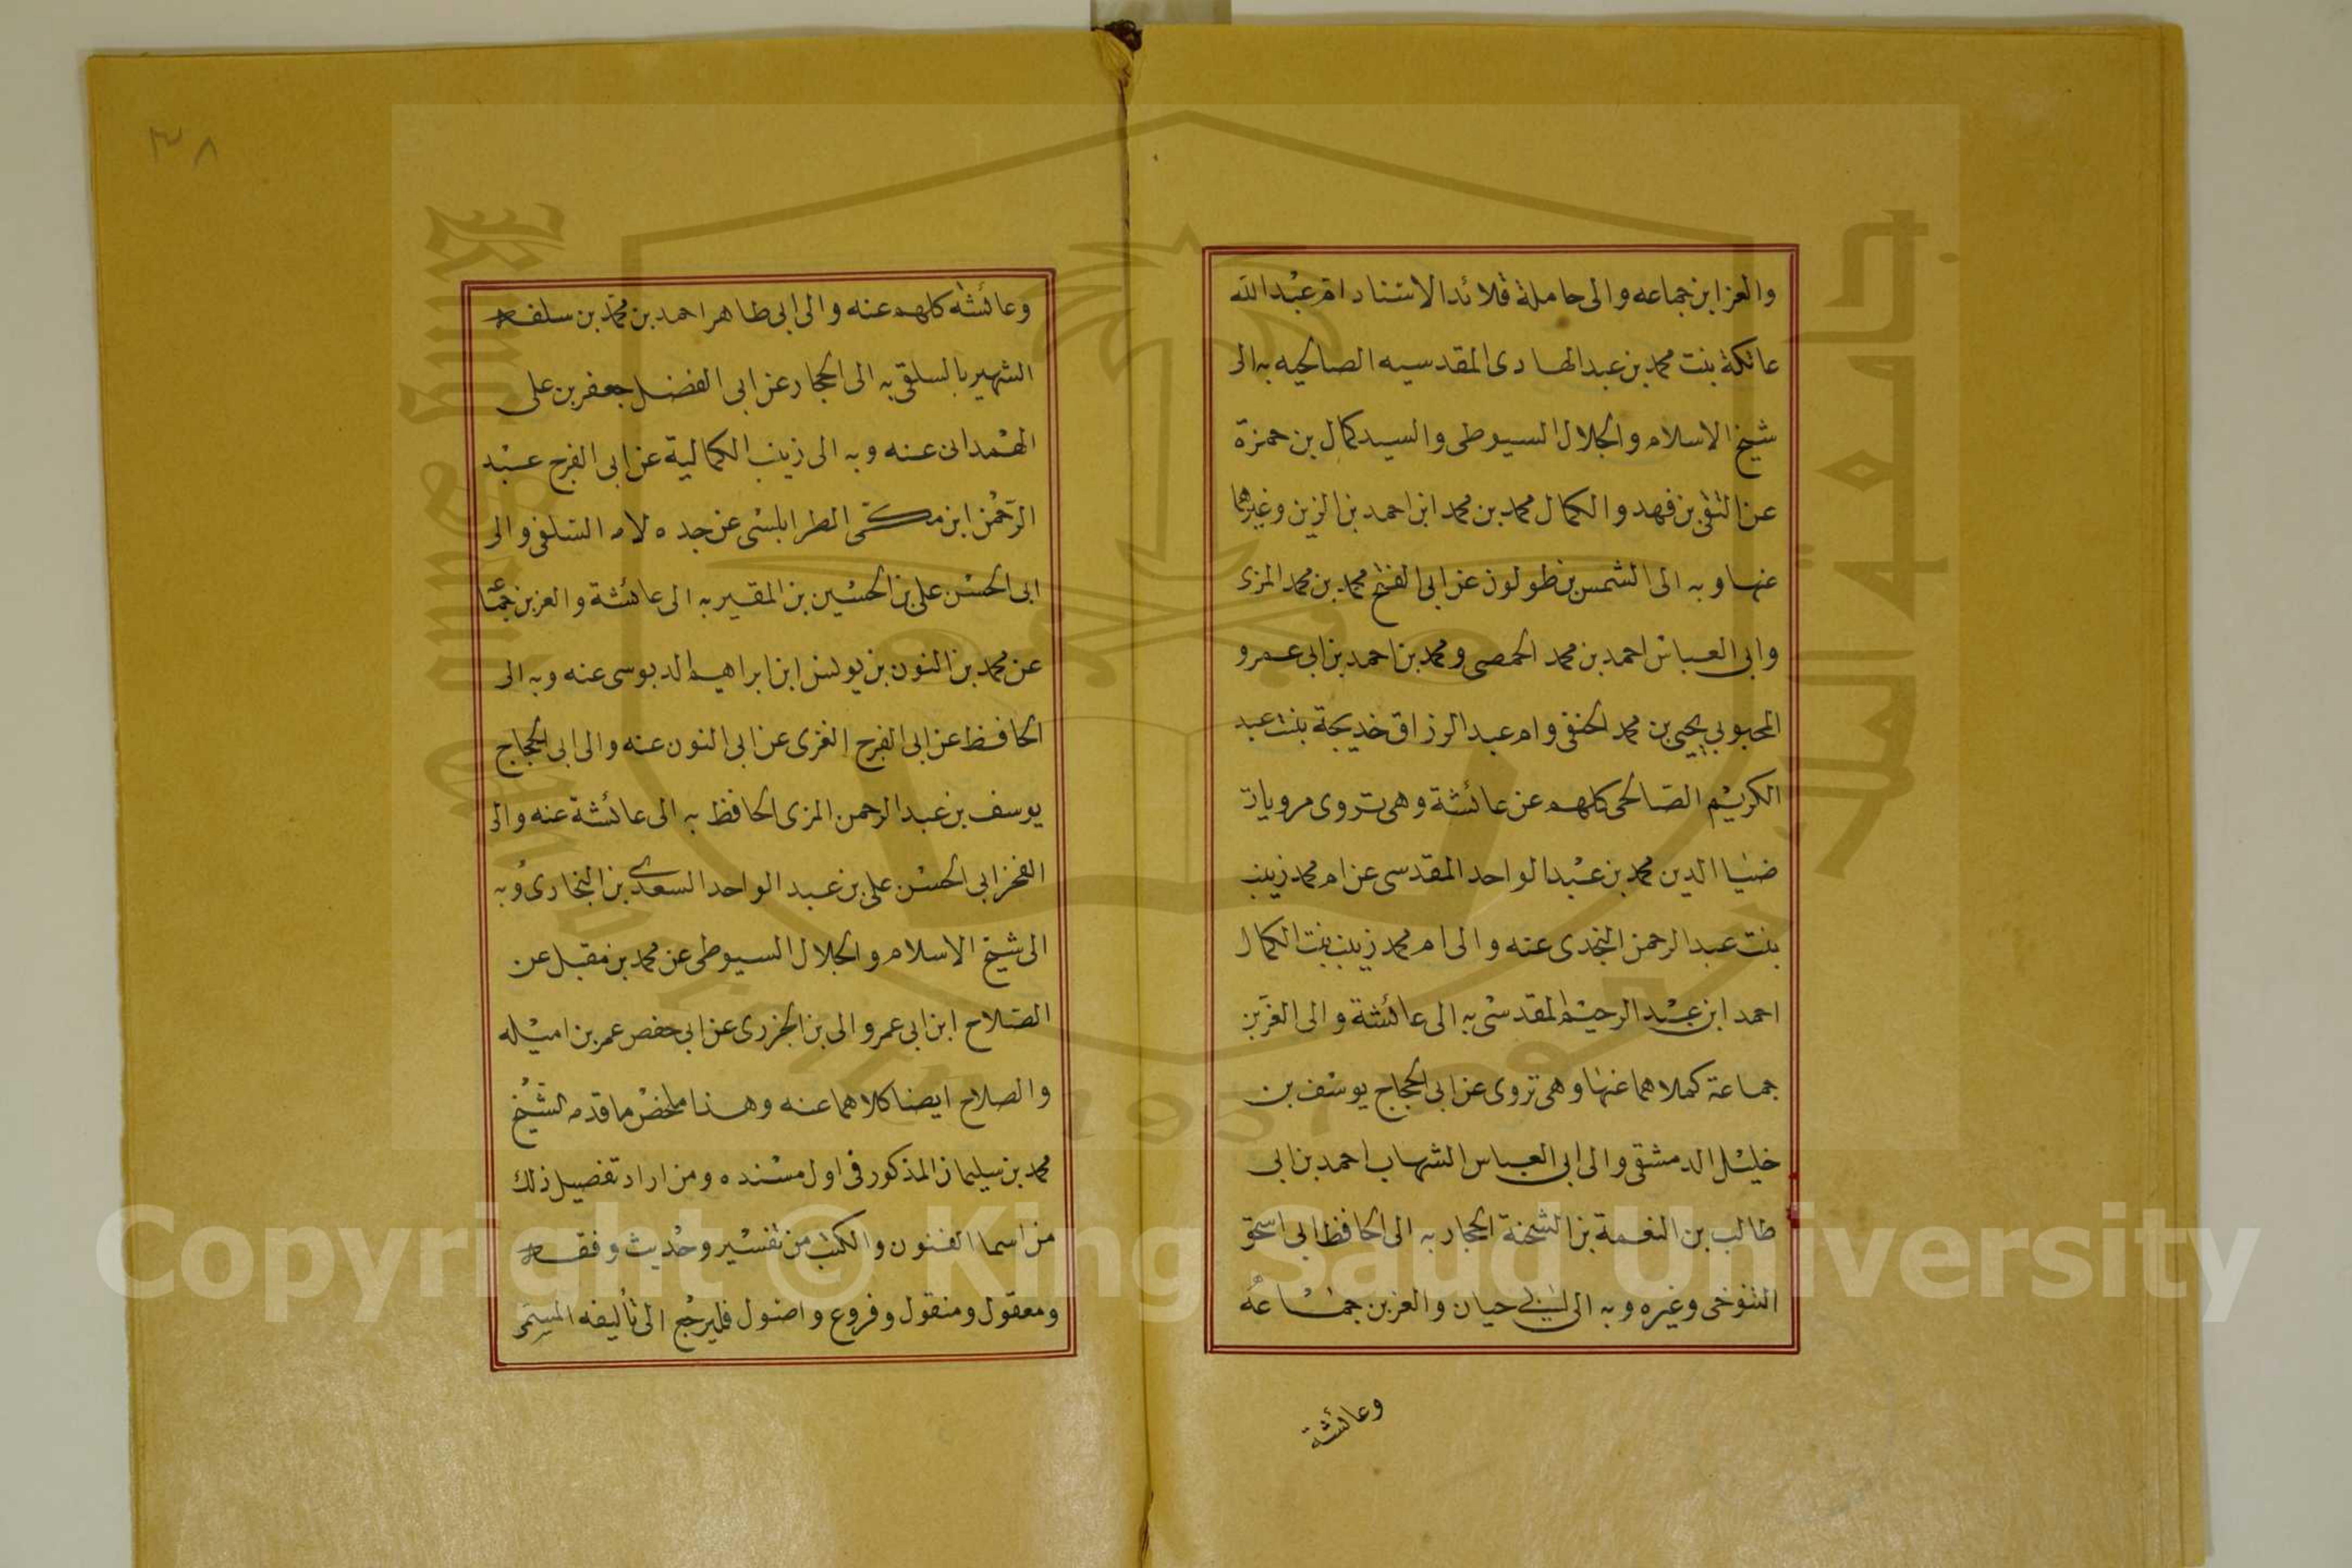 والعز ابن جماعه والى حاملة قلائد الاسناد ام عبد الله
عائكة بنت محمد بن عبد الهادى المقدسيه الصالحيه به الى
شيخ الاسلام والجلال السيوطى والسيد كمال بن حمزة
عن التقى بن فهد والكمال محمد بن محمد ابن احمد بن الزين وغيرهما
عنها وبه الى الشمس بن طولون عن ابى الفتح محمد بن محمد المزى
وابى العباس احمد بن محمد الحمصى ومحمد بن احمد بن ابى عمرو
المحبوبي يحيى بن محمد الحنفى وام عبد الرزاق خديجة بنت عبد
الكريم الصالحى كلهم عن عائشة وهى تروى مرويات
ضيا الدين محمد بن عبد الواحد المقدسى عن ام محمد زينب
بنت عبد الرحمن النجدى عنه والى ام محمد زينب بنت الكمال
احمد ابن عبد الرحيم المقدسى به الى عائشة والى العز بن
جماعة كملاهما عنها وهى تروى عن ابى الحجاج يوسف بن
خليل الدمشقى والى ابى العباس الشهاب احمد بن ابى
طالب بن النعمة بن الشحنة الحجار به الى الحافظ ابى اسحق
التنوخى وغيره وبه الى ابى حيان والعز بن جماعه
وعائشة
٣٨
وعائشه كلهم عنه والى ابى طاهر احمد بن محمد بن سلفه
الشهير بالسلقى به الى الحجار عن ابى الفضل جعفر بن على
الهمدانى عنه وبه الى زينب الكمالية عن ابى الفرج عبد
الرحمن ابن مكى الطرابلسى عن جده لامه السلفى والى
ابى الحسن على بن الحسين بن المقير به الى عائشة والعز بن جماعة
عن محمد بن النون بن يونس ابن ابراهيم الدبوسى عنه وبه الى
الحافظ عن ابى الفرج الغزى عن ابى النون عنه والى ابى الحجاج
يوسف بن عبد الرحمن المزى الحافظ به الى عائشة عنه والى
الفخر ابى الحسن على بن عبد الواحد السعدى بن البخارى وبه
الى شيخ الاسلام والجلال السيوطى عن محمد بن مقبل عن
الصلاح ابن ابى عمر والى بن الجزرى عن ابى حفص عمر بن اميله
والصلاح ايضا كلاهما عنه وهذا ملخص ما قدمه الشيخ
محمد بن سليمان المذكور فى اول مسنده ومن اراد تفصيل ذلك
من اسما الفنون والكتب من تفسير وحديث وفقه
ومعقول ومنقول وفروع واصول فليرجع الى تأليفه المسمى
Copyright © King Saud University
جامعة الملك سعود
King Saud University
1957